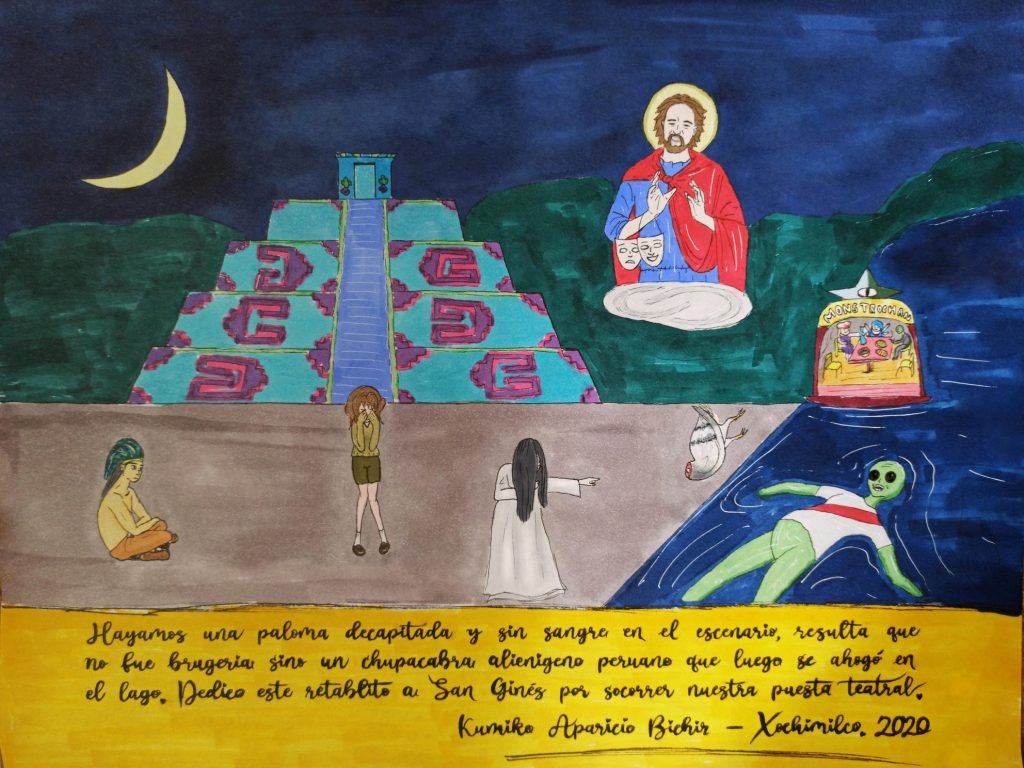 MONSTRUCHAN
Hayamos una paloma decapitada y sin sangre en el escenario, resulta que
no fue brugeria sino un chupacabra alienigeno peruano que luego se ahogó en
el lago. Dedico este retablito a San Ginés por socorrer nuestra puesta teatral.
Kumiko Aparicio Bichir – Xochimilco. 2020